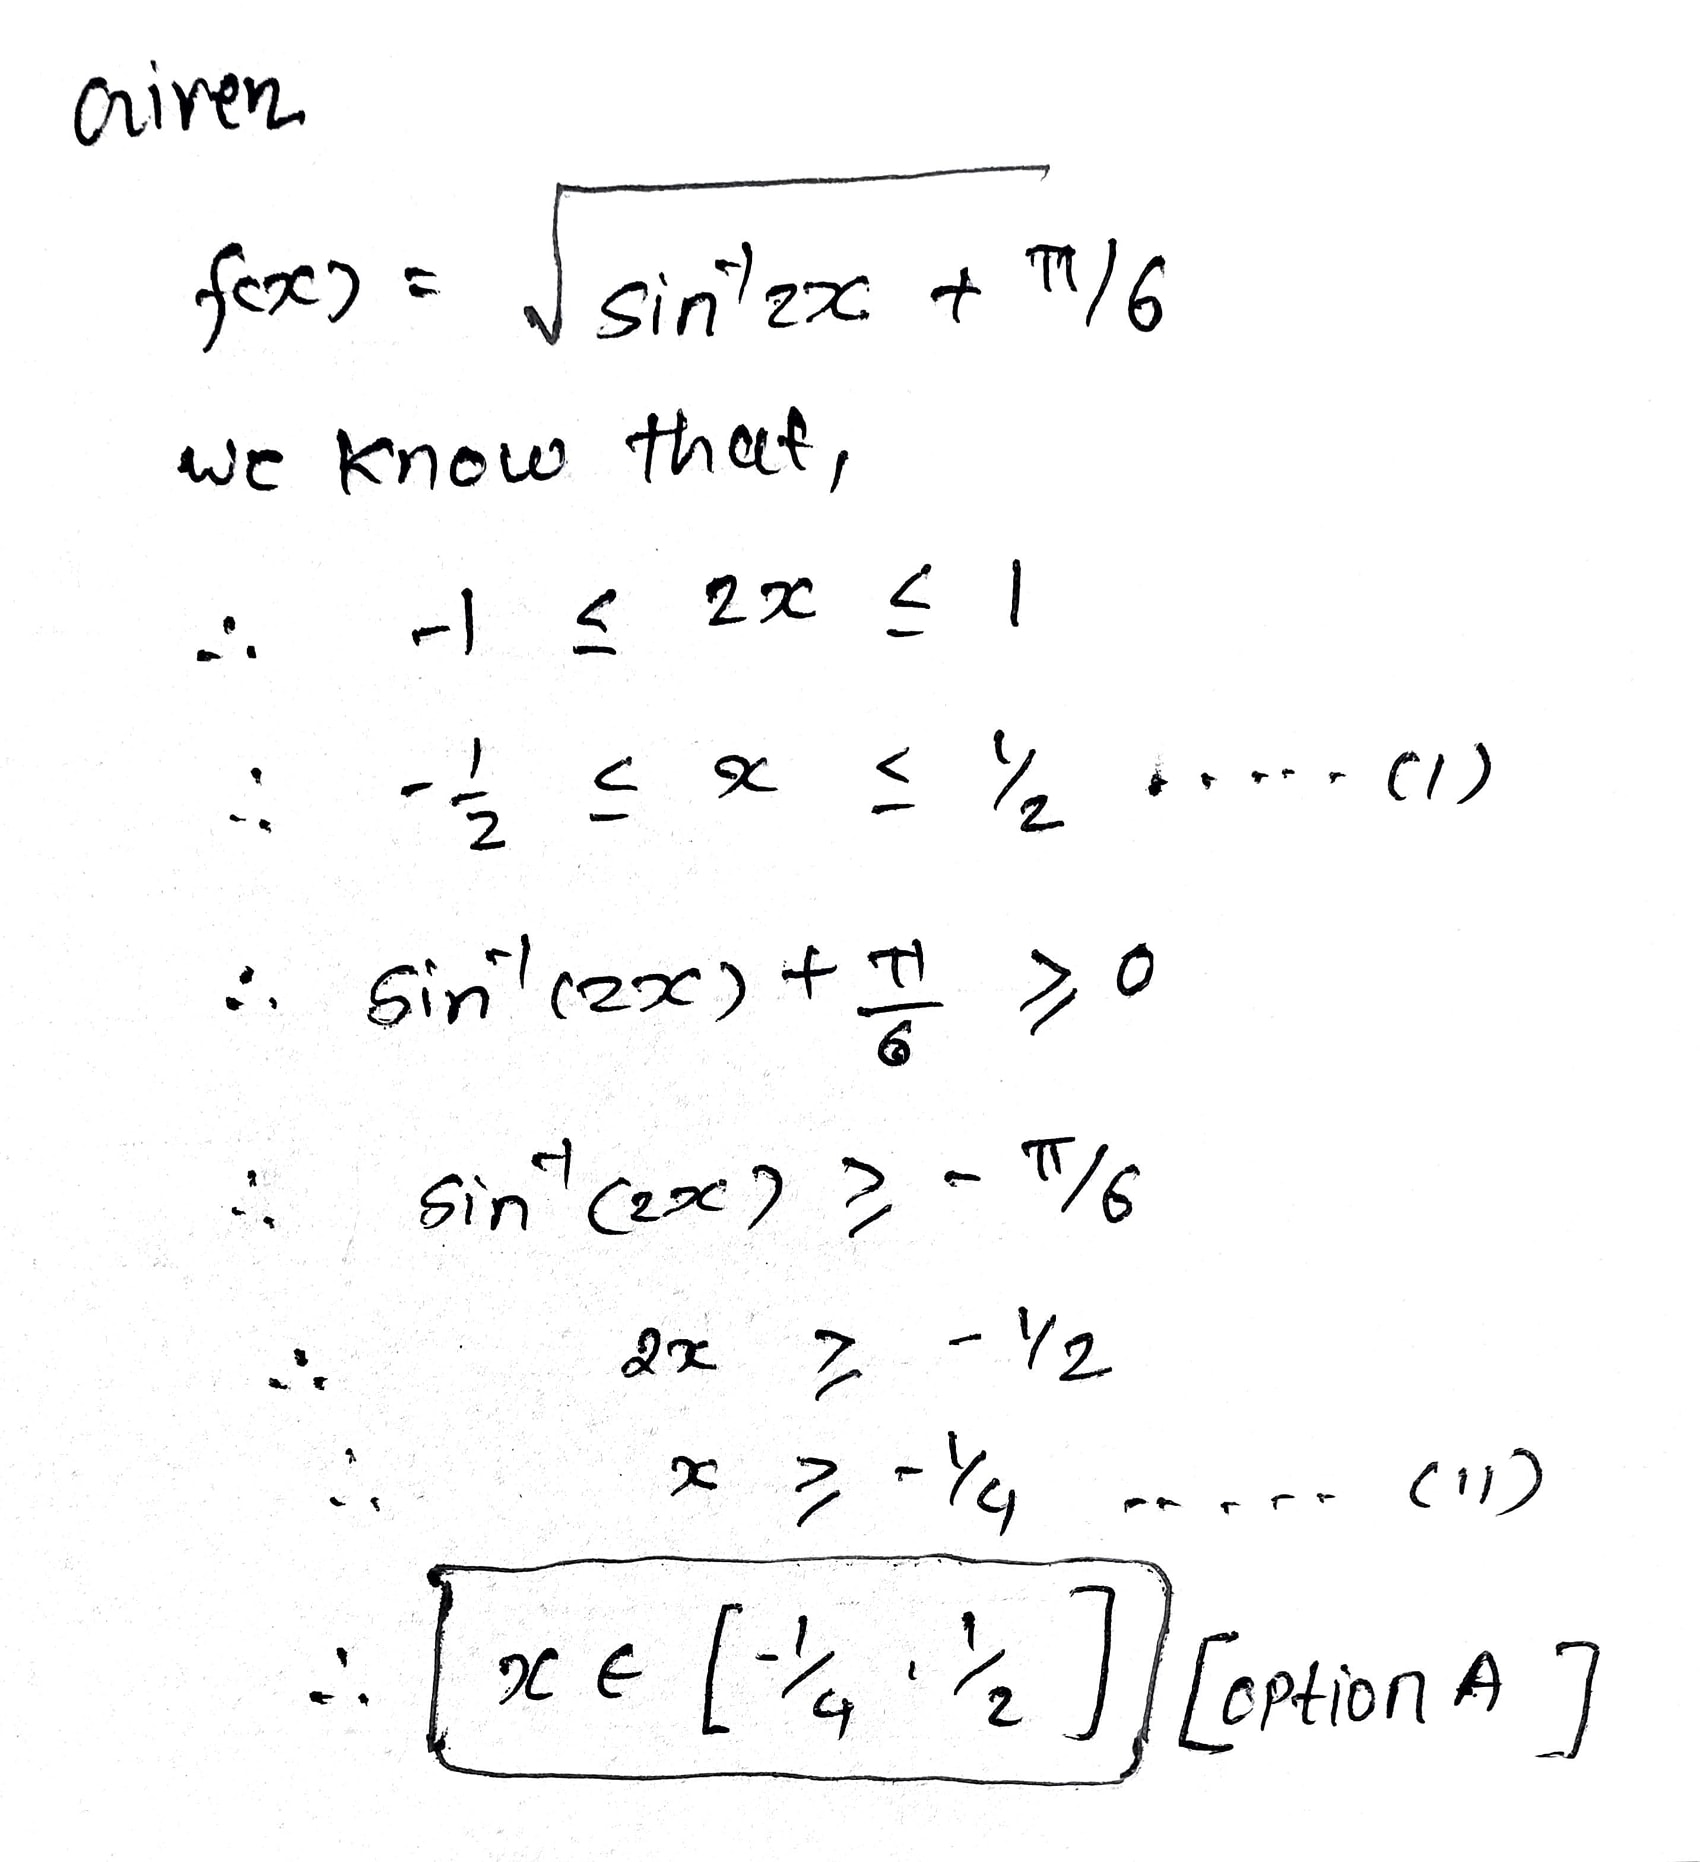 Given
f(x) = √(sin⁻¹2x + π/6)
we know that,
∴ -1 ≤ 2x ≤ 1
∴ -1/2 ≤ x ≤ 1/2 ..... (I)
∴ sin⁻¹(2x) + π/6 ≥ 0
∴ sin⁻¹(2x) ≥ -π/6
∴ 2x ≥ -1/2
∴ x ≥ -1/4 ...... (II)
∴ x ∈ [-1/4, 1/2] [option A]